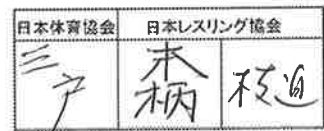 日本体育協会 日本レスリング協会
三戸 木柄 枝迫